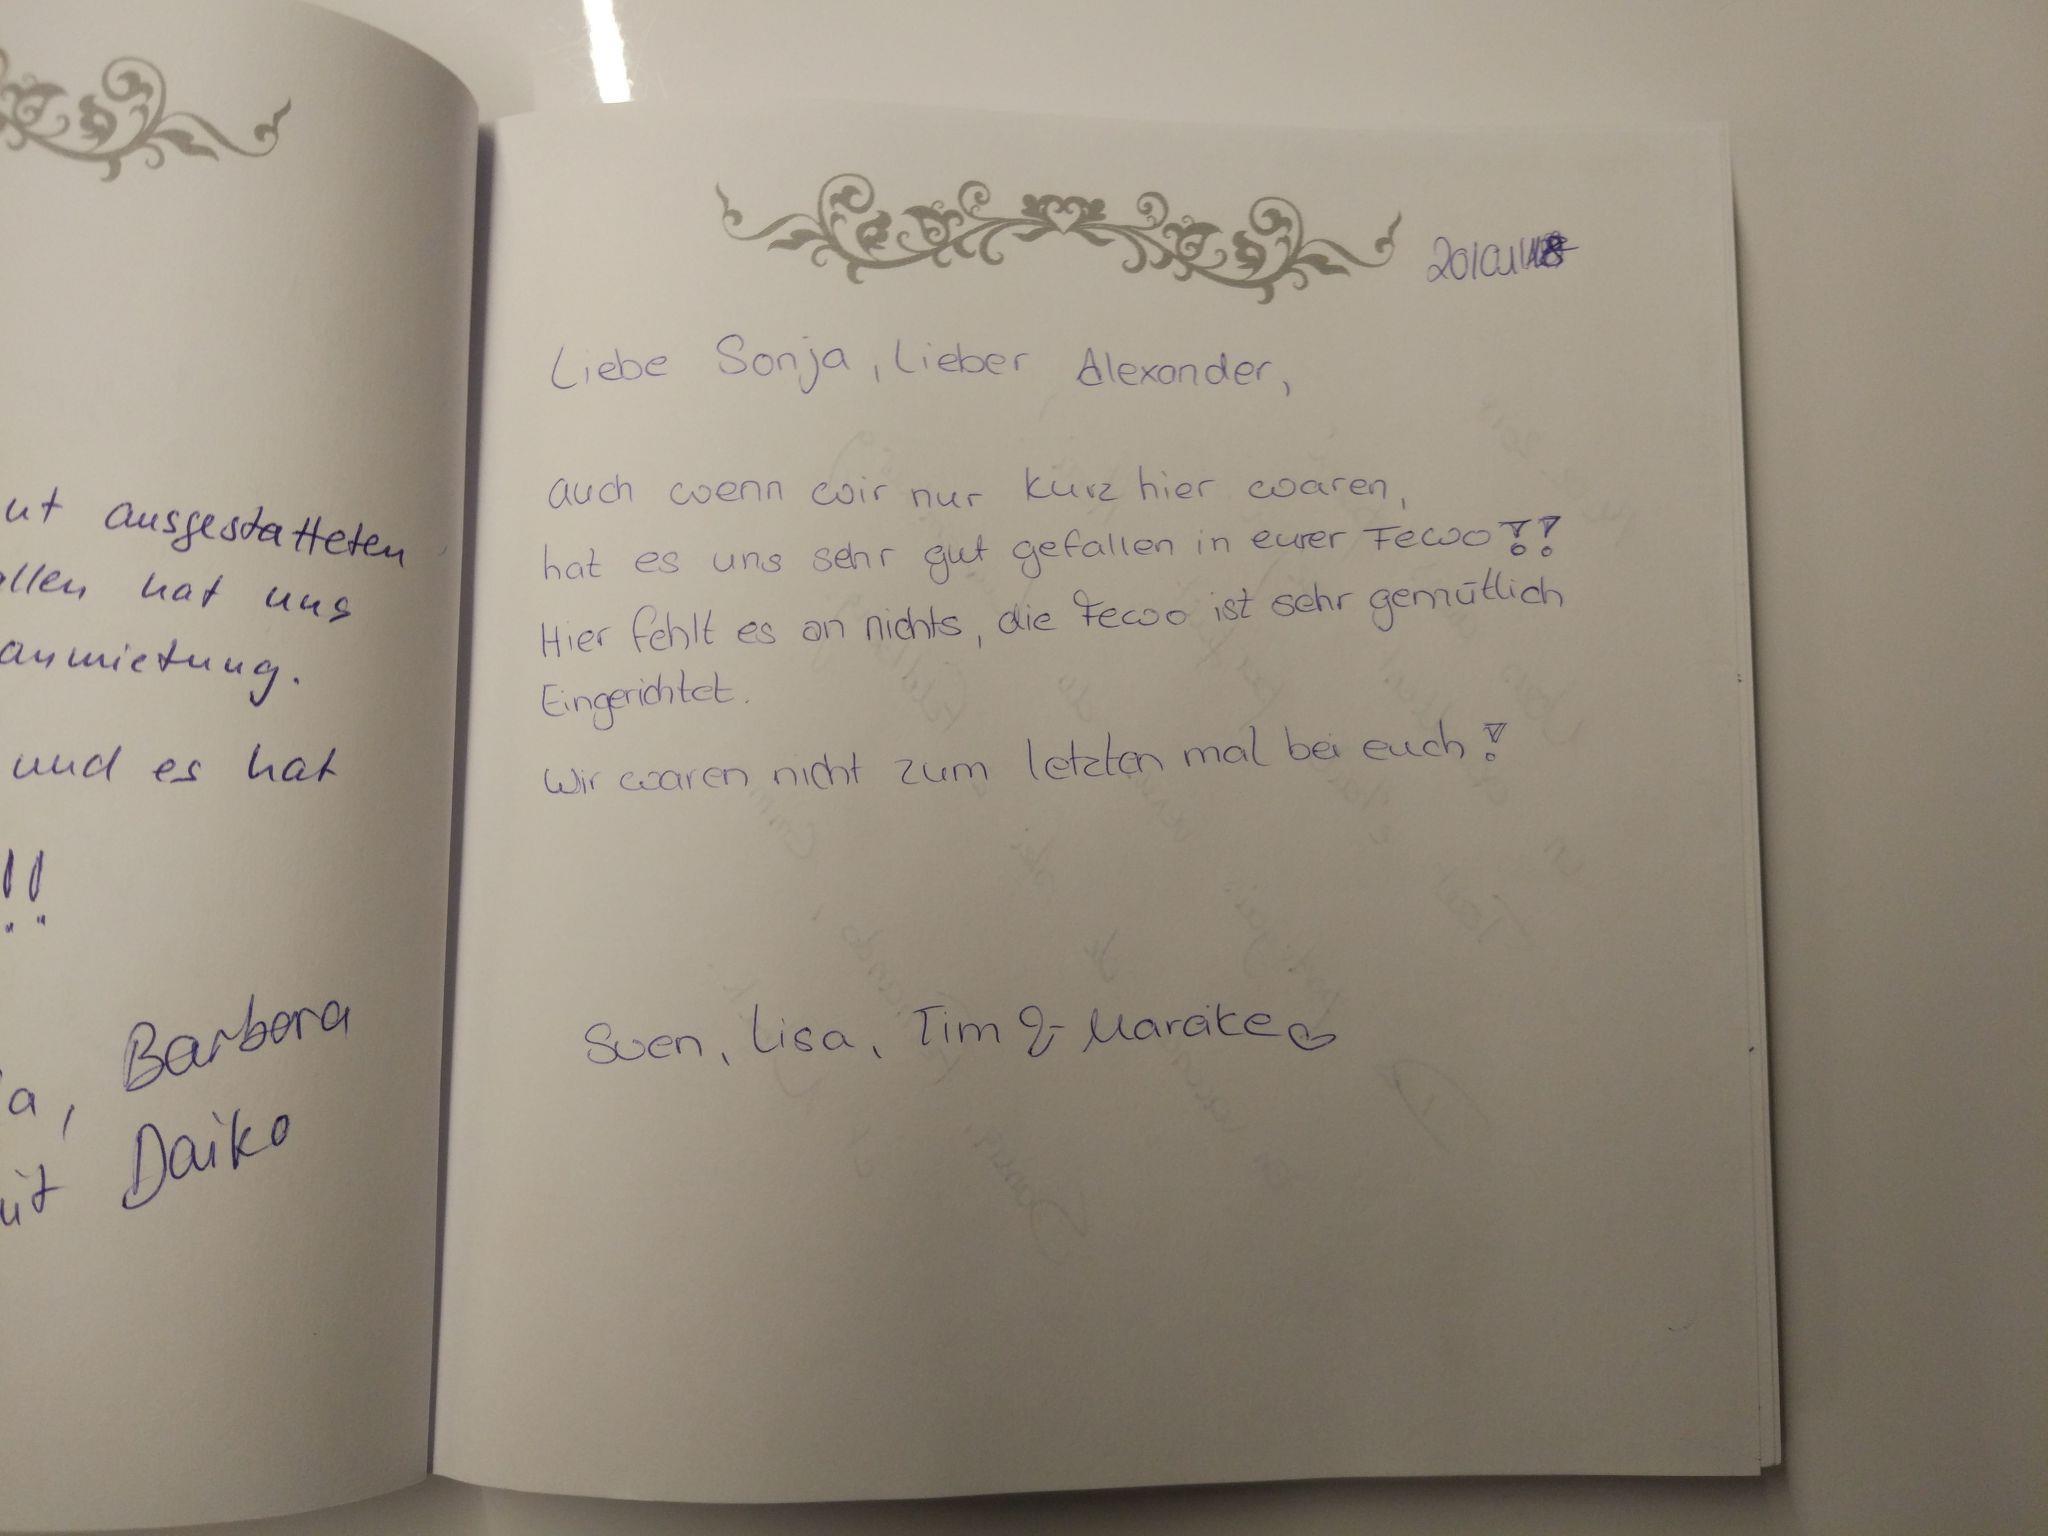 ut ausgestatteten
allen hat uns
anmietung.
und es hat
!!
a, Barbora
mit Daiko
20/01/18
Liebe Sonja, Lieber Alexander,
auch wenn wir nur kurz hier waren,
hat es uns sehr gut gefallen in eurer Fewo!!
Hier fehlt es an nichts, die Fewo ist sehr gemütlich
Eingerichtet.
Wir waren nicht zum letzten mal bei euch!
Sven, Lisa, Tim & Mareike